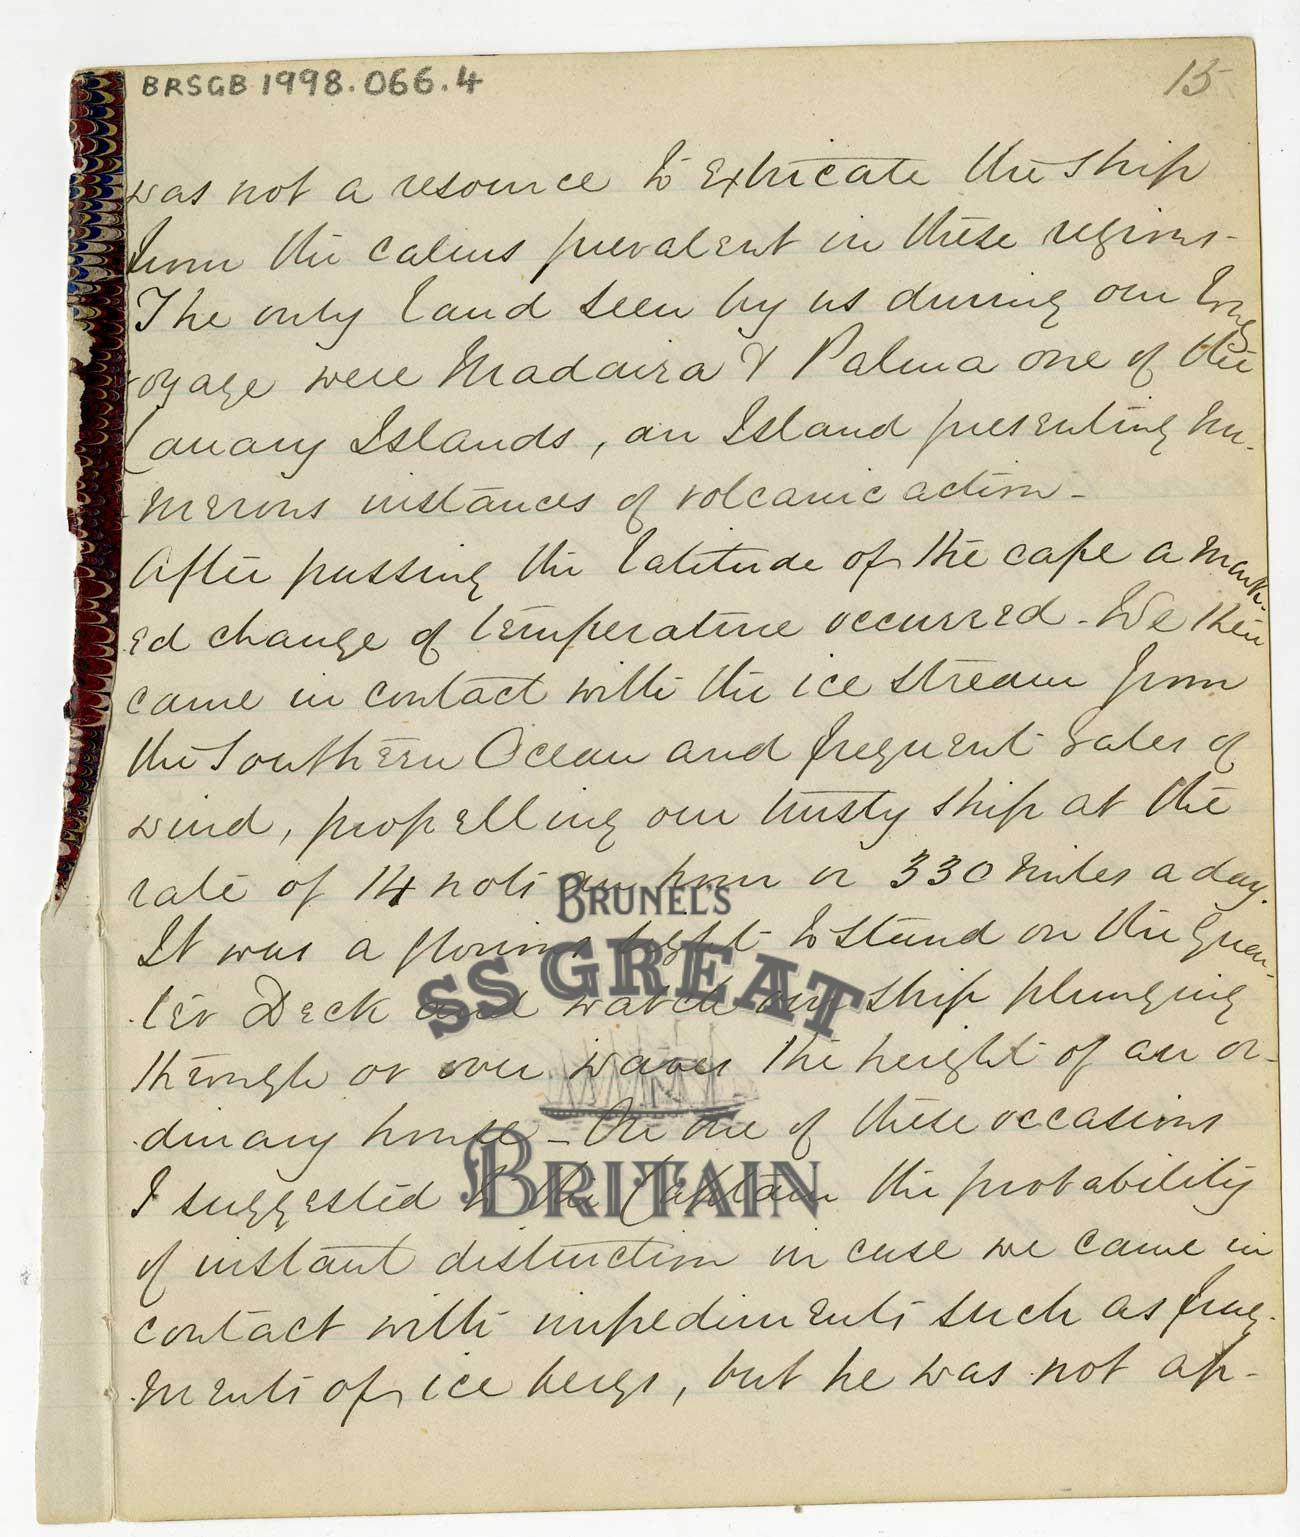 BRSGB 1998.066.4
15
was not a resource to extricate the ship
from the calms prevalent in these regions -
The only land seen by us during our long
voyage were Madaira & Palma one of the
Canary Islands, an Island presenting nu-
merous instances of volcanic action -
After passing the latitude of the cape a mark-
ed change of temperature occurred - We then
came in contact with the ice stream from
the Southern Ocean and frequent gales of
wind, propelling our trusty ship at the
rate of 14 nots an hour or 330 miles a day.
It was a glorious sight to stand on the Quar-
ter Deck and watch our ship plunging
through or over waves the height of an or-
dinary house - On one of these occasions
I suggested to the Captain the probability
of instant distinction in case we came in
contact with impediments such as frag-
ments of ice bergs, but he was not ap-
BRUNEL'S
SS GREAT
BRITAIN